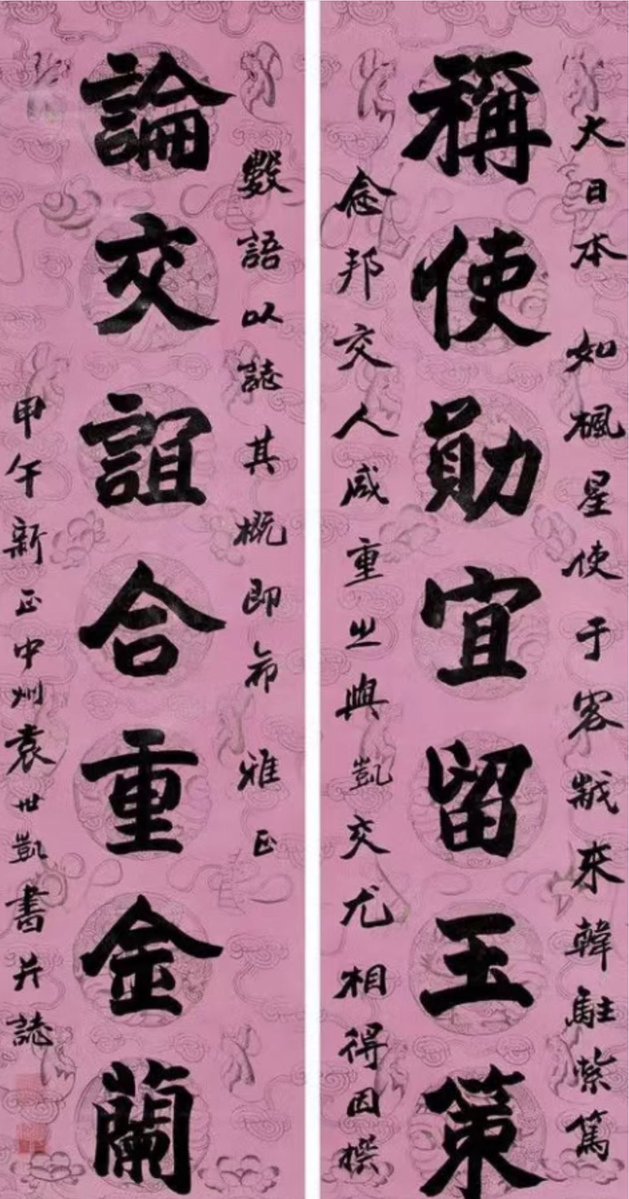 大日本 如楓星使于客歲来韓駐紮篤
稱使勛宜留玉策
念邦交人咸重之與凱交尤相得因撰
數語以誌其概即希 雅正
論交誼合重金蘭
甲午新正中州袁世凱書并誌